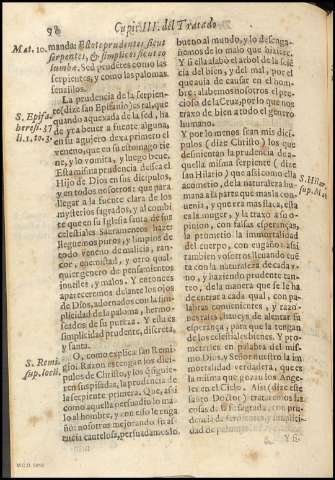 98 Cap. III. del Tratado
Mat. 10.
manda: Estote prudentes sicut
serpentes, & simplices sicut co
lumbæ. Sed prudentes como las
serpientes, y como las palomas
senzillos.
La prudencia de la serpien-
te (dize san Epifanio) es tal, que
quando aquexada de la sed, ha
de yr a beuer a fuente alguna,
en su agujero dexa primero el
veneno, que en su estomago tie
ne, y lo vomita, y luego beue.
Esta misma prudencia busca el
Hijo de Dios en sus dicipulos,
y en todos nosotros: que para
llegar a la fuente clara de los
mysterios sagrados, y al combi
te que en su Iglesia haze de sus
celestiales Sacramentos: hazer
lleguemos puros, y limpios de
todo veneno de malicia, ran-
cor, enemistad, y otro qual-
quier genero de pensamientos
inutiles, y malos. Y entonces
pareceremos delante los ojos
de Dios, adornados con la sim-
plicidad de la paloma, hermo-
seados de su pureza. Y ella es
simplicidad prudente, discreta,
y santa.
S. Epifa.
heresi. 37
li. 1. to. 3.
O, como explica san Remi-
gio: Razon escogan los dici-
pulos de Christo, los que siguie-
ren su apellido, la prudencia de
la serpiente primera. Que, assi
como aquella persuadio lo ma
lo al hombre, y con esso le enga
ño: nosotros mejorando su as-
tucia cautelosa, persuadamos lo
S. Remi.
sup. locū.
bueno al mundo, y lo desenga-
ñemos de lo malo que hiziere.
Y si ella alabo el arbol de la sciē
cia del bien, y del mal, por el
que auia de causar en el hom-
bre: alabemos nosotros el pre-
cioso de la Cruz, por lo que nos
traxo de bien a todo el genero
humano.
Y por lo menos sean mis dici-
pulos (dize Christo) los que
desentrañen la prudencia de
aquella misma serpiente (dize
san Hilario) que assi como ella
acometio, de la naturaleza hu-
mana a la parte que mas la con
uenia, y que era mas flaca, esta
es la muger, y la traxo a su o-
pinion, con falsas esperanças,
la prometio la inmortalidad
del cuerpo, con engaños: assi
tambien vosotros, teniendo cuē
ta con la naturaleza de cada v-
no, y haziendo prudente tan-
teo, de la manera que se le ha
de entrar a cada qual, con pa-
labras conuenientes, y razo-
nes tales, hazeys de alentar su
esperança, para que la tengan
de los celestiales bienes. Y pro-
metereysles en palabra del mis-
mo Dios, y Señor nuestro la in
mortalidad verdadera, que es
la misma que gozan los Ange-
les en el Cielo. Assi dize este
santo Doctor) trataremos las
cosas de su Fè sagrada, con pru
dencia serpentina, y simplici-
dad de paloma.
Y si
S. Hilar.
sup. Mat.
M.C.D. 2018